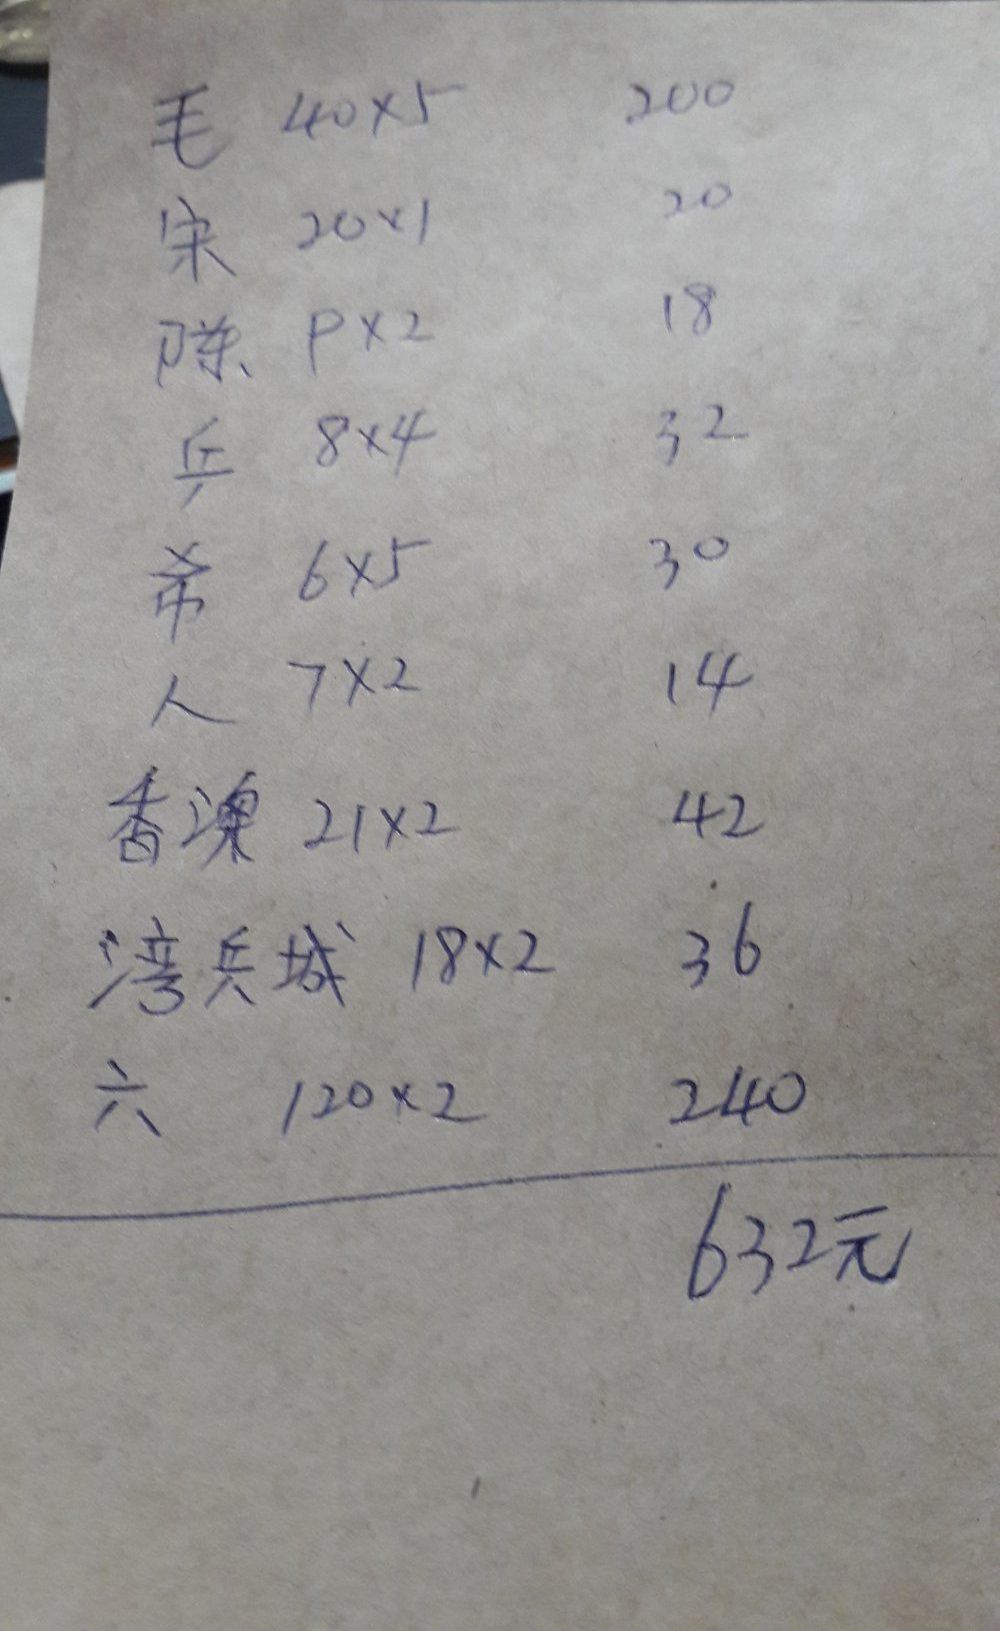 毛 40×5 200
宋 20×1 20
陈 9×2 18
乒 8×4 32
希 6×5 30
人 7×2 14
香澳 21×2 42
湾兵城 18×2 36
六 120×2 240
632元